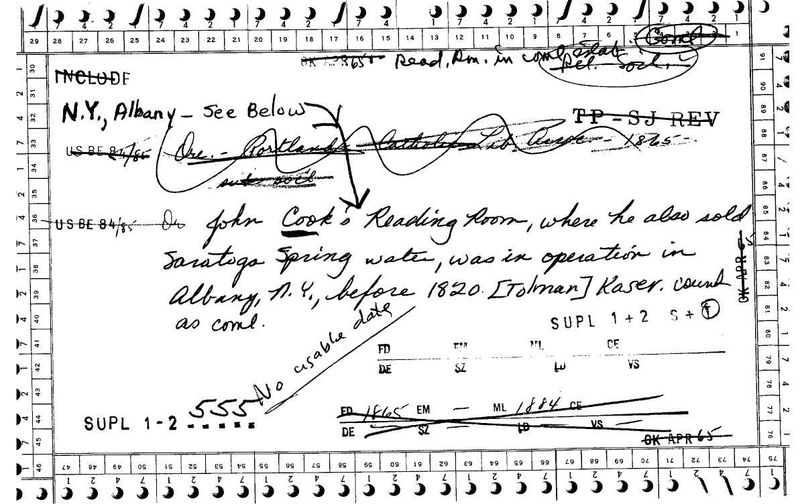 OK APR 65 Read. Rm. in coml.
Coml
INCLUDE
N.Y., Albany - See Below
TP - SJ REV
US BE 84/85 Ore. - Portland - Catholic Lib. Assoc. - 1865
sub socl
US BE 84/85 Or John Cook's Reading Room, where he also sold
Saratoga Spring water, was in operation in
Albany, N.Y., before 1820. [Tolman] Kaser. count
as coml.
OK APR 65
No usable date
SUPL 1 + 2 S + T
FD EM ML CE
DE SZ LD VS
SUPL 1-2 555
FD 1865 EM — ML 1884 CE
DE SZ — LD — VS —
OK APR 65